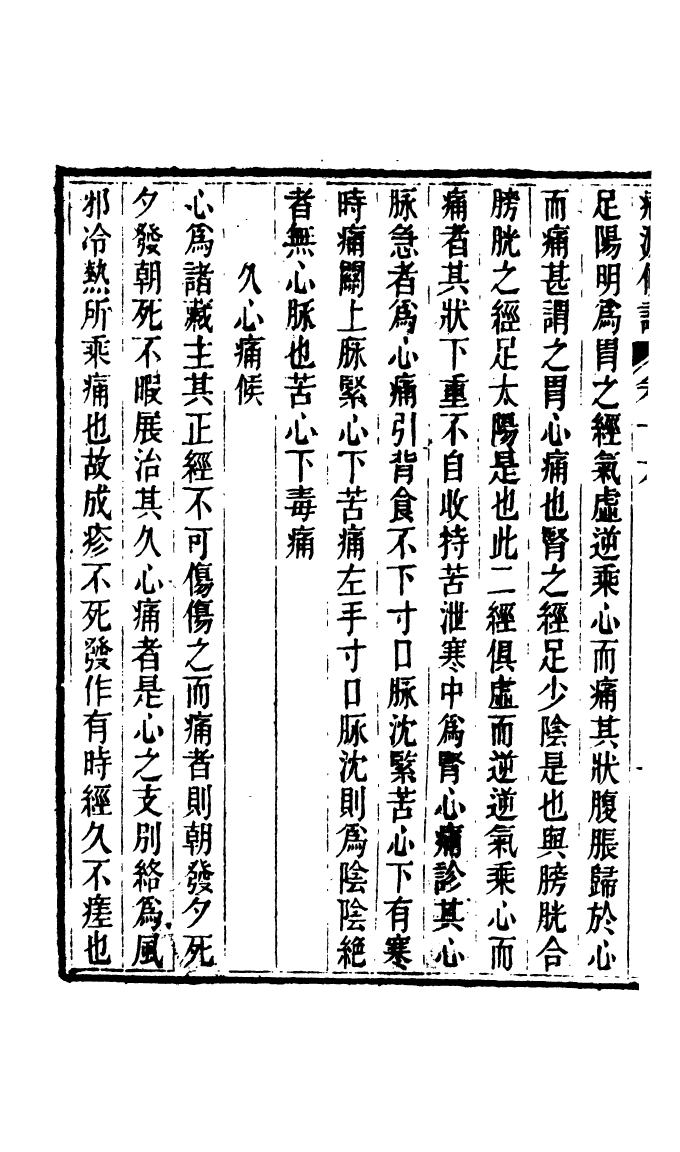 足陽明爲胃之經氣虛逆乘心而痛其狀腹脹歸於心
而痛甚謂之胃心痛也腎之經足少陰是也與膀胱合
膀胱之經足太陽是也此二經俱虛而逆逆氣乘心而
痛者其狀下重不自收持苦泄寒中爲腎心痛診其心
脉急者爲心痛引背食不下寸口脉沈緊苦心下有寒
時痛關上脉緊心下苦痛左手寸口脉沈則爲陰陰絶
者無心脉也苦心下毒痛
久心痛候
心爲諸藏主其正經不可傷傷之而痛者則朝發夕死
夕發朝死不暇展治其久心痛者是心之支別絡爲風
邪冷熱所乘痛也故成疹不死發作有時經久不瘥也